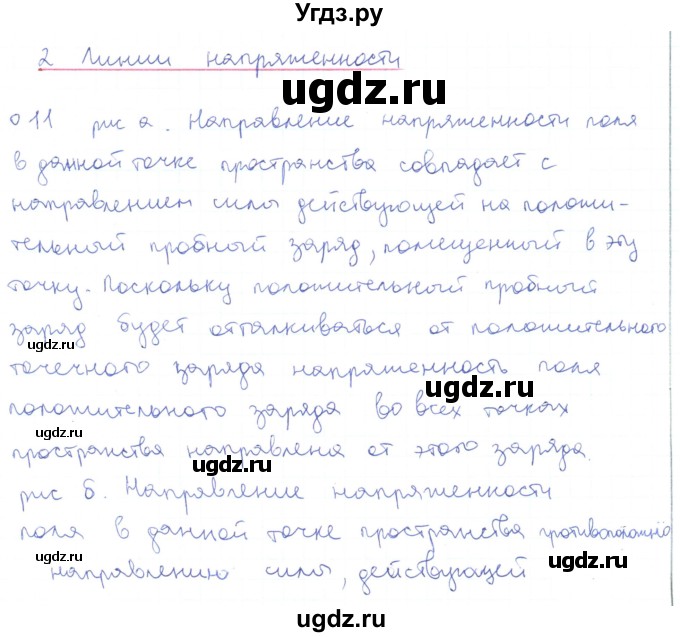 Угдз.ру
2 Линии напряженности
ugdz.ru
o 11 рис а. Направление напряженности поля
в данной точке пространства совпадает с
направлением силы действующей на положи-
тельный пробный заряд, помещенный в эту
точку. Поскольку положительный пробный
заряд будет отталкиваться от положительного
ugdz.ru
ugdz.ru
точечного заряда напряженность поля
ugdz.ru
положительного заряда во всех точках
ugdz.ru
пространства направлена от этого заряда.
ugdz.ru
рис б. Направление напряженности
поля в данной точке пространства противоположно
ugdz.ru
ugdz.ru
направлению силы, действующей
ugdz.ru
ugdz.ru